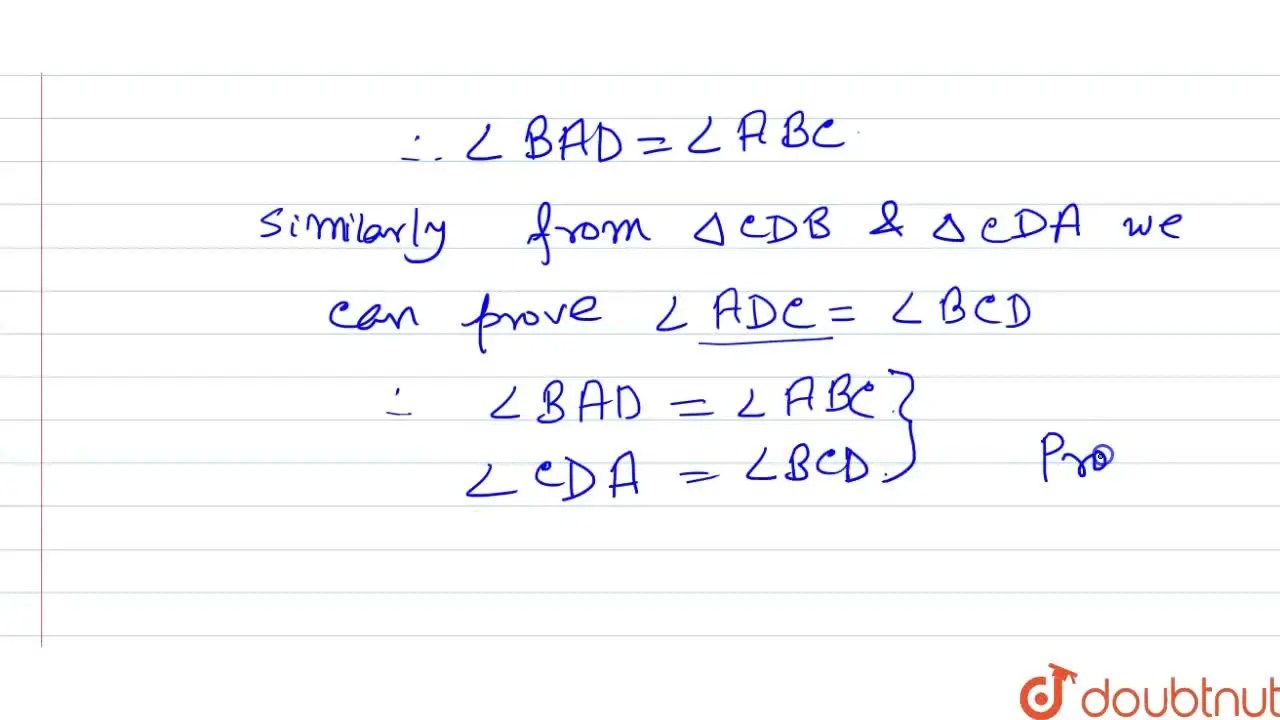 ∴ ∠BAD = ∠ABC
Similarly from △CDB & △CDA we
can prove ∠ADC = ∠BCD
∴ ∠BAD = ∠ABC }
∠CDA = ∠BCD. } Pro
doubtnut